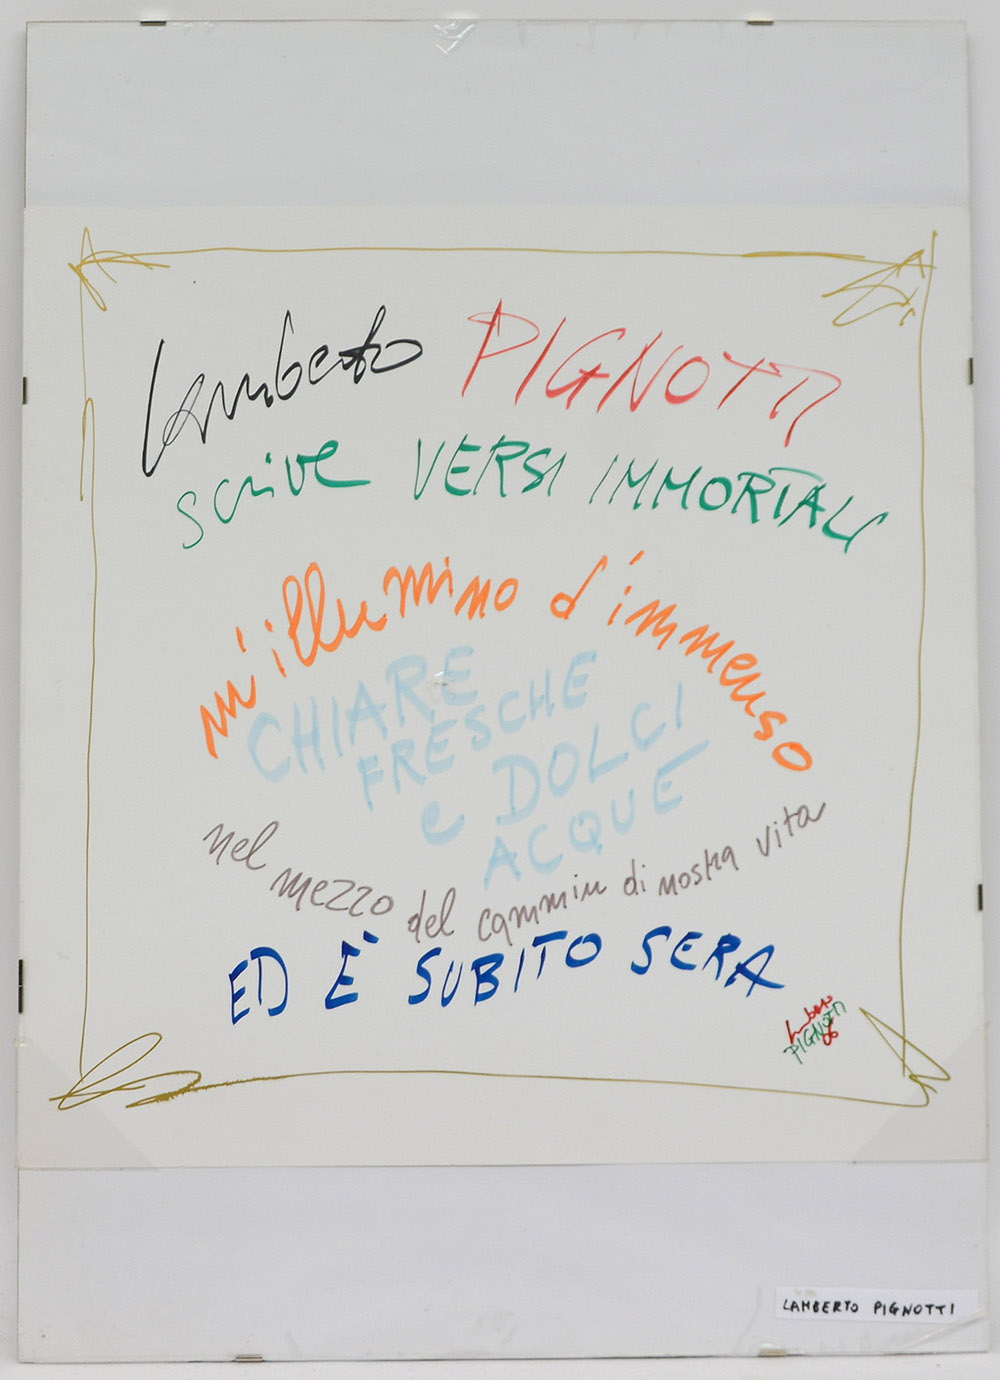 Lamberto PIGNOTTI
scrive VERSI IMMORTALI
m'illumino d'immenso
CHIARE
FRESCHE
e DOLCI
ACQUE
nel mezzo del cammin di nostra vita
ED È SUBITO SERA
Lamberto
PIGNOTTI
06
LAMBERTO PIGNOTTI